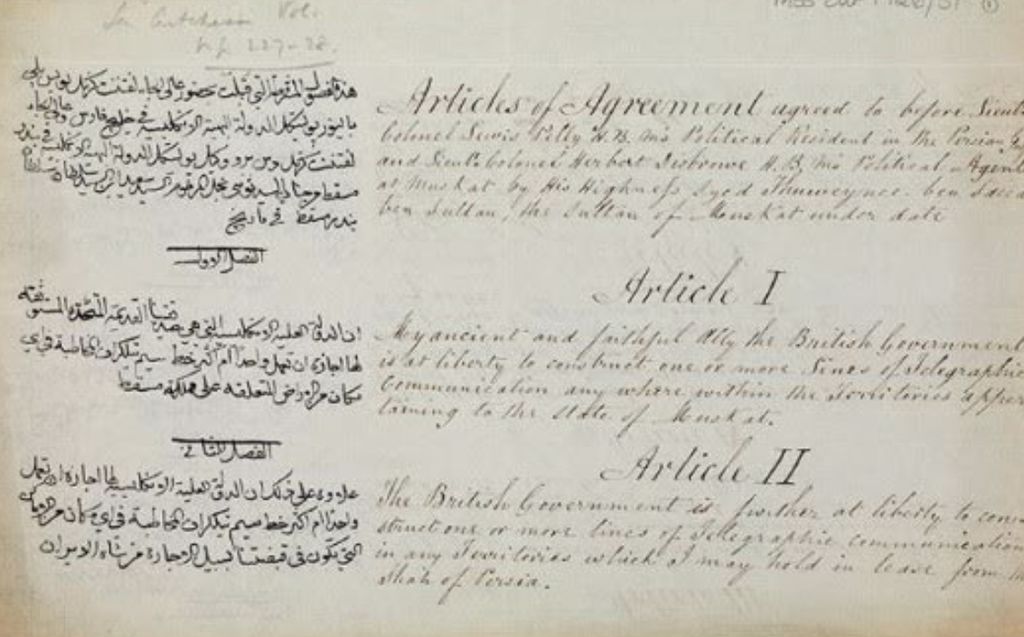 هذه الفصول المقرره التي قبلت بحضور عالي الجاه لفتننت كرنل لويس پلي
باليوز بولتكل الدولة البهية الانكليسية في خليج فارس وعالي الجاه
لفتننت كرنل وكيل بولتكل الدولة البهية الانكليسية في بندر
مسقط السيد ثويني بن السيد سعيد بن السيد سلطان
بندر مسقط في تاريخ
الفصل الاول
ان الدولة العلية الانكليسية التي هي القديمة المتحده
لها اجازة ان تعمل واحدا ام اكثر خط سيم تيلكراف في اي
مكان من الاراضي المتعلقة على مملكة مسقط
الفصل الثاني
علاوة على ذلك ان الدولة العلية الانكليسية لها اجازة ان تعمل
واحدا ام اكثر خط سيم تيلكراف في اي مكان من
التي يكون في قبضتنا بسبيل الاجارة من شاه الايران
Articles of Agreement agreed to before Lieut
Colonel Lewis Pelly H.B.M's Political Resident in the Persian
and Lieut. Colonel Herbert Disbrowe H.B.M's Political Agent
at Muskat by His Highness Syed Thuweynee ben Saeed
ben Sultan, the Sultan of Muskat under date
Article I
My ancient and faithful Ally the British Government
is at liberty to construct one or more Lines of Telegraphic
Communication any where within the Territories apper
taining to the State of Muskat.
Article II
The British Government is further at liberty to con
struct one or more lines of Telegraphic communication
in any Territories which I may hold in lease from the
Shah of Persia.